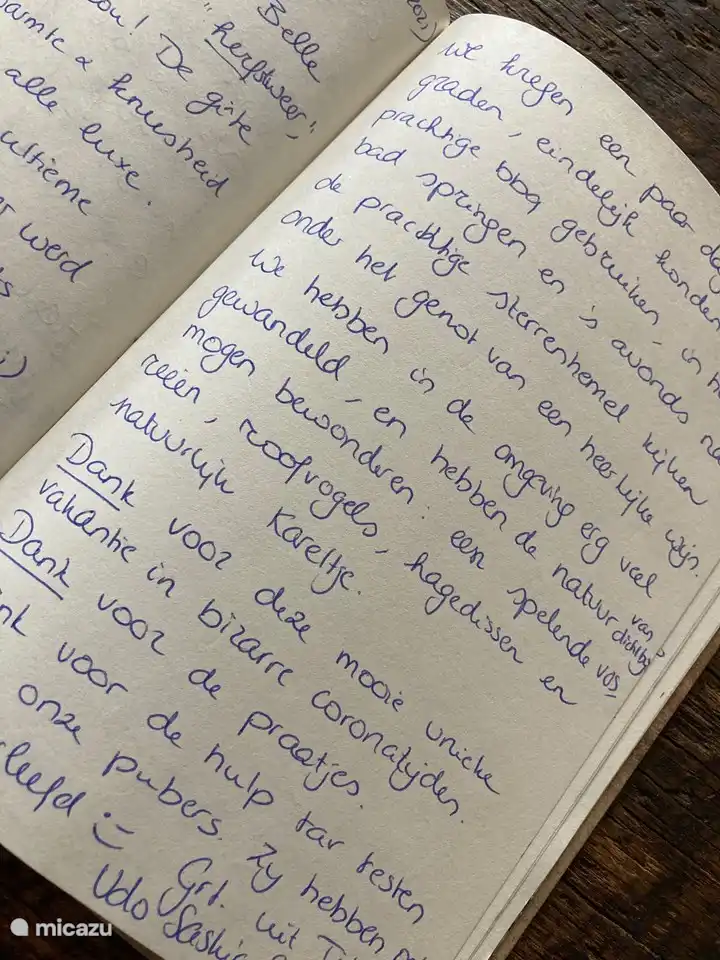 Belle
"herfstweer",
De gûte
warmte & knusheid
alle luxe.
ultieme
werd
we kregen een paar
graden, eindelijk konden
prachtige bbq gebruiken, in
bad springen en 's avonds
de prachtige sterrenhemel kijken
onder het genot van een heerlijke wijn.
We hebben in de omgeving erg veel
gewandeld, en hebben de natuur van dichtbij
mogen bewonderen: een spelende vos,
reeën, roofvogels, hagedissen en
natuurlijk Kareltje.
Dank voor deze mooie unieke
vakantie in bizarre coronatijden.
Dank voor de praatjes.
voor de hulp
onze pubers. Zij hebben
:-) Grt. uit
Udo
micazu